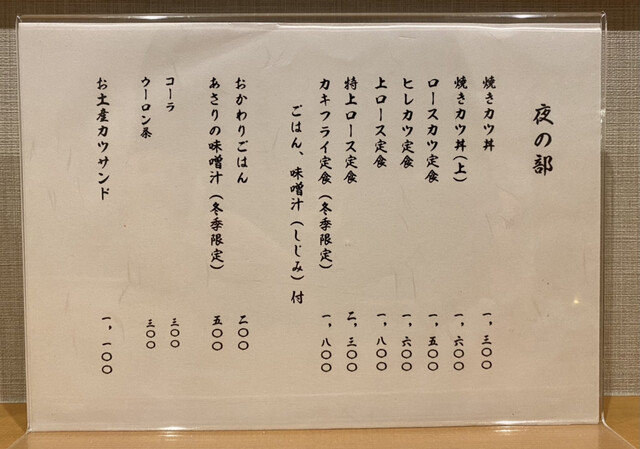 夜の部
焼きカツ丼 一，三〇〇
焼きカツ丼（上） 一，六〇〇
ロースカツ定食 一，五〇〇
ヒレカツ定食 一，六〇〇
上ロース定食 一，八〇〇
特上ロース定食 二，三〇〇
カキフライ定食（冬季限定） 一，八〇〇
ごはん、味噌汁（しじみ）付
おかわりごはん 二〇〇
あさりの味噌汁（冬季限定） 五〇〇
コーラ 三〇〇
ウーロン茶 三〇〇
お土産カツサンド 一，一〇〇